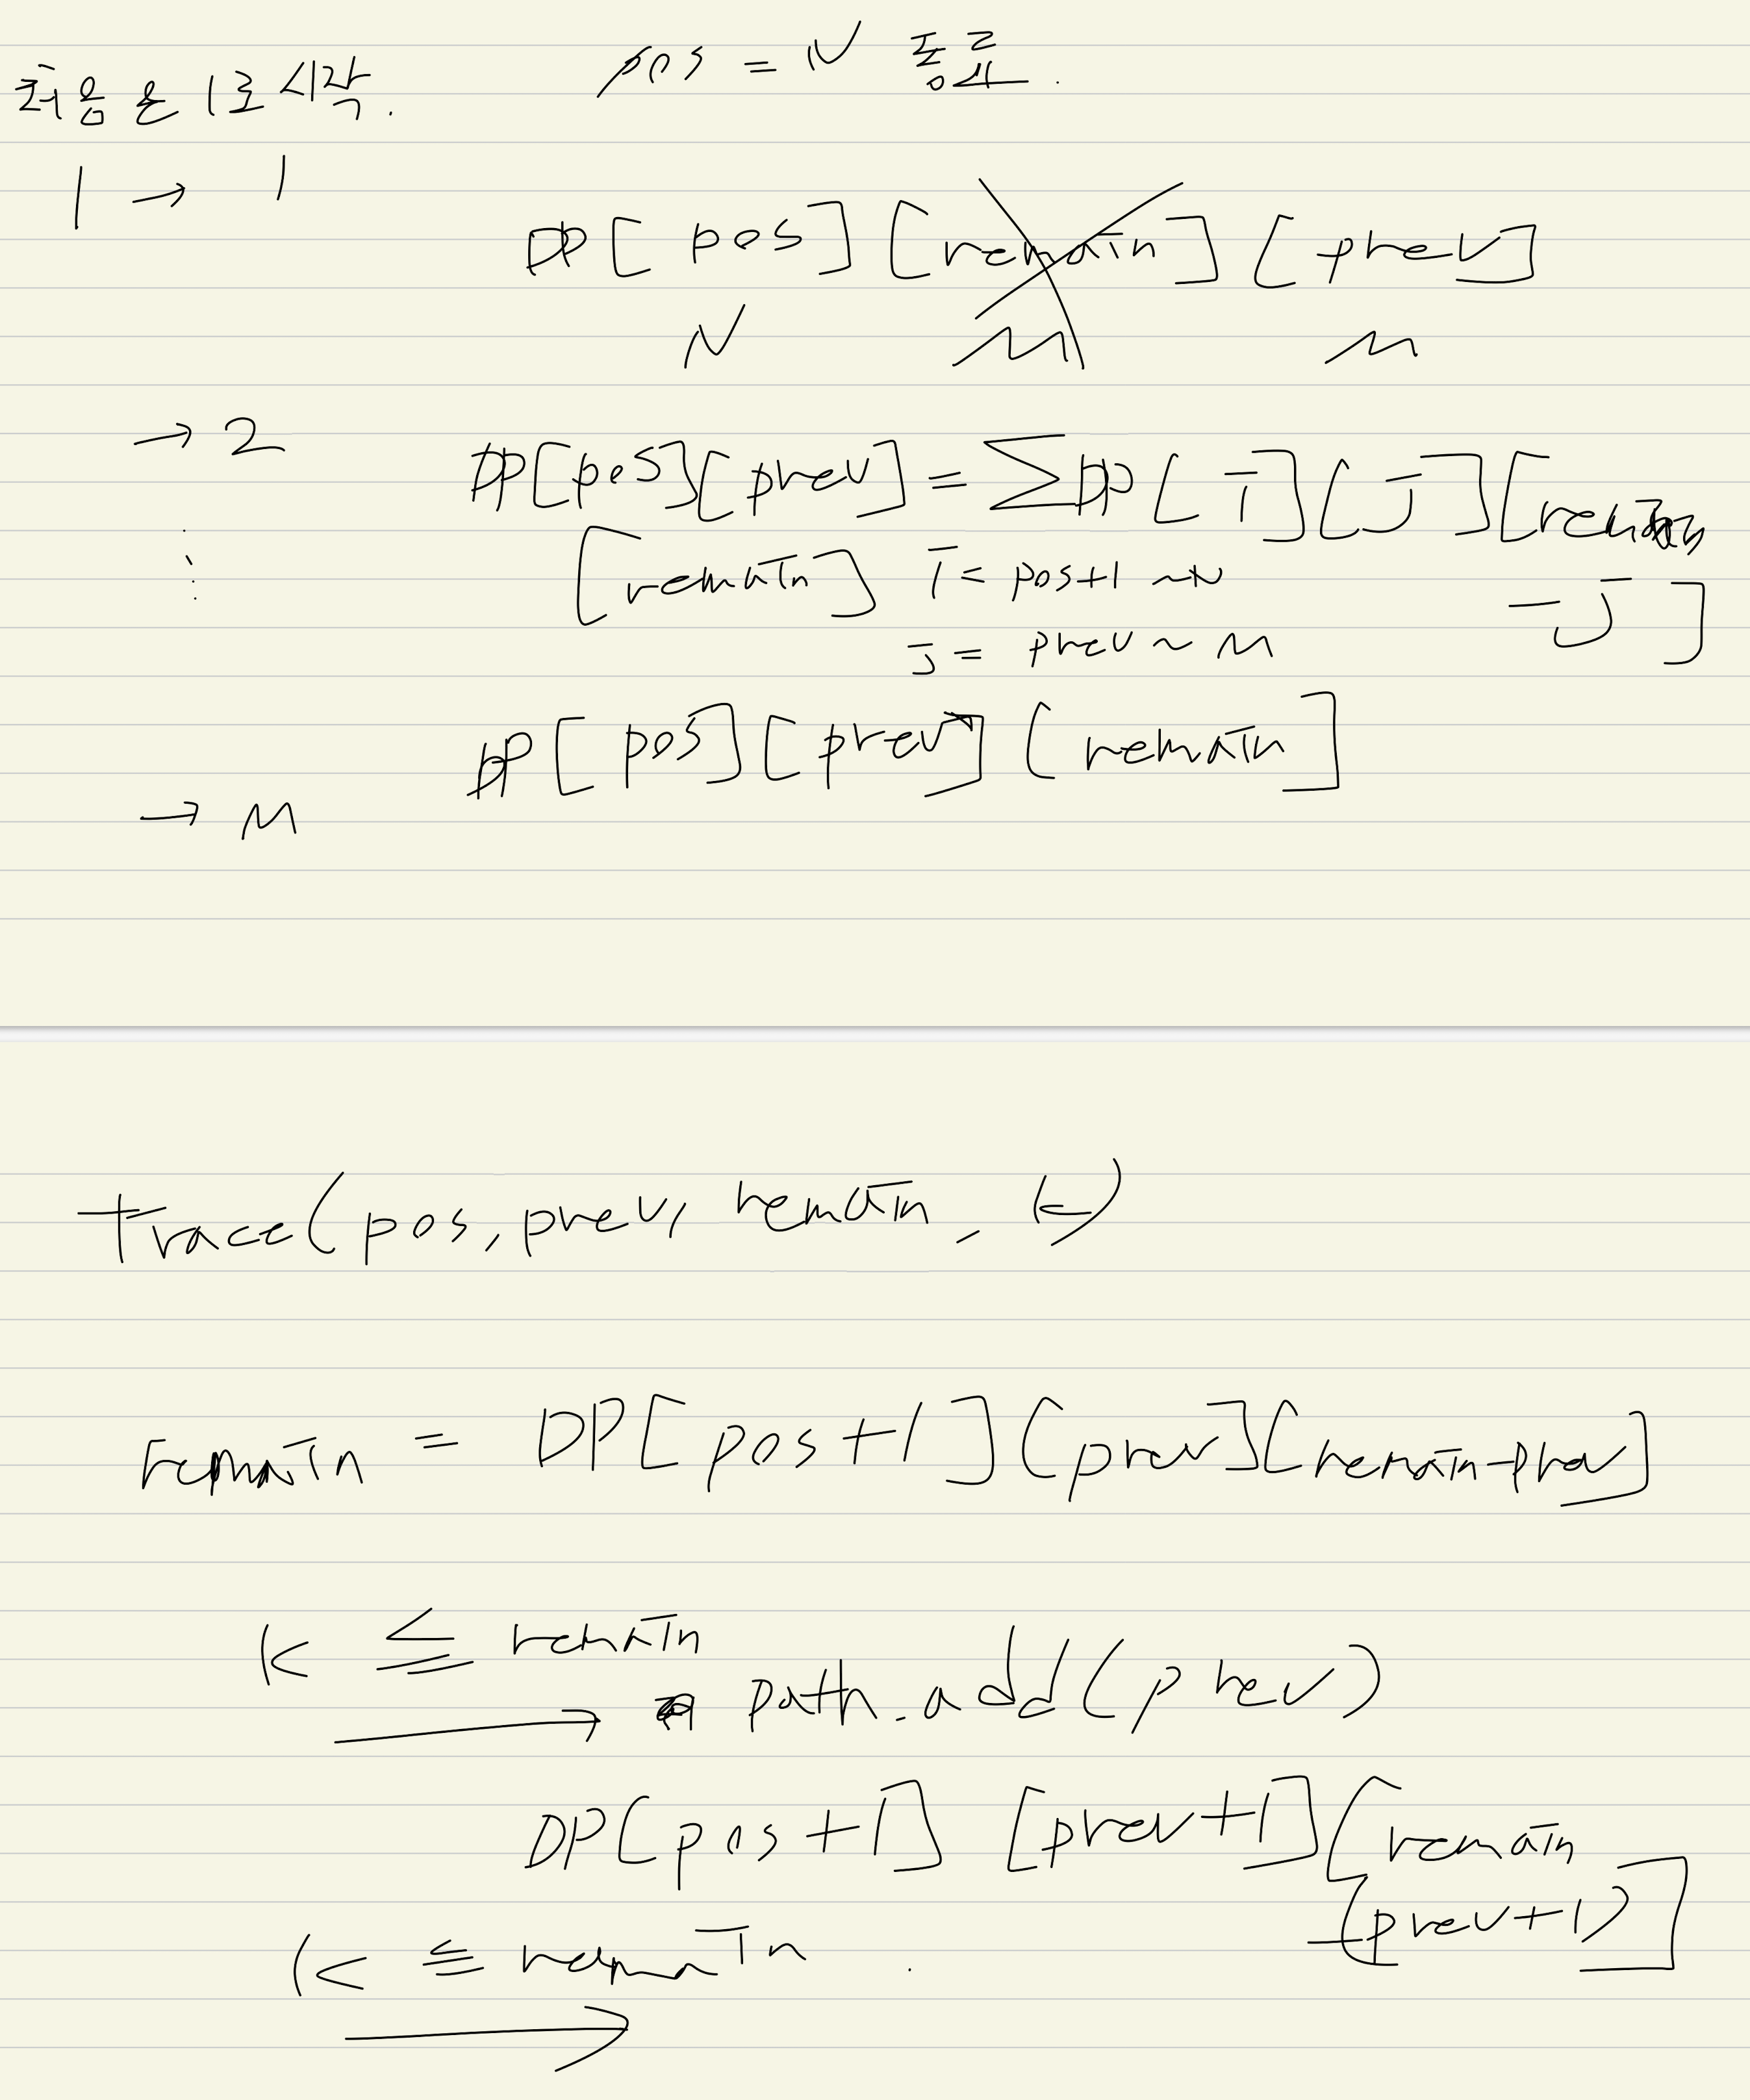 처음은 1로 시작.
pos = N 종료.
1 → 1
DP[pos][remain][prev]
N M M
→ 2
DP[pos][prev] = ∑DP[i][j][remain
[remain] i = pos+1 ~ N
- j]
j = prev ~ M
DP[pos][prev][remain]
→ M
trace(pos, prev, remain, k)
remain = DP[pos+1][prev][remain-prev]
k ≤ remain
→ path.add(prev)
DP[pos+1][prev+1][remain
-(prev+1)]
k ≤ remain
→